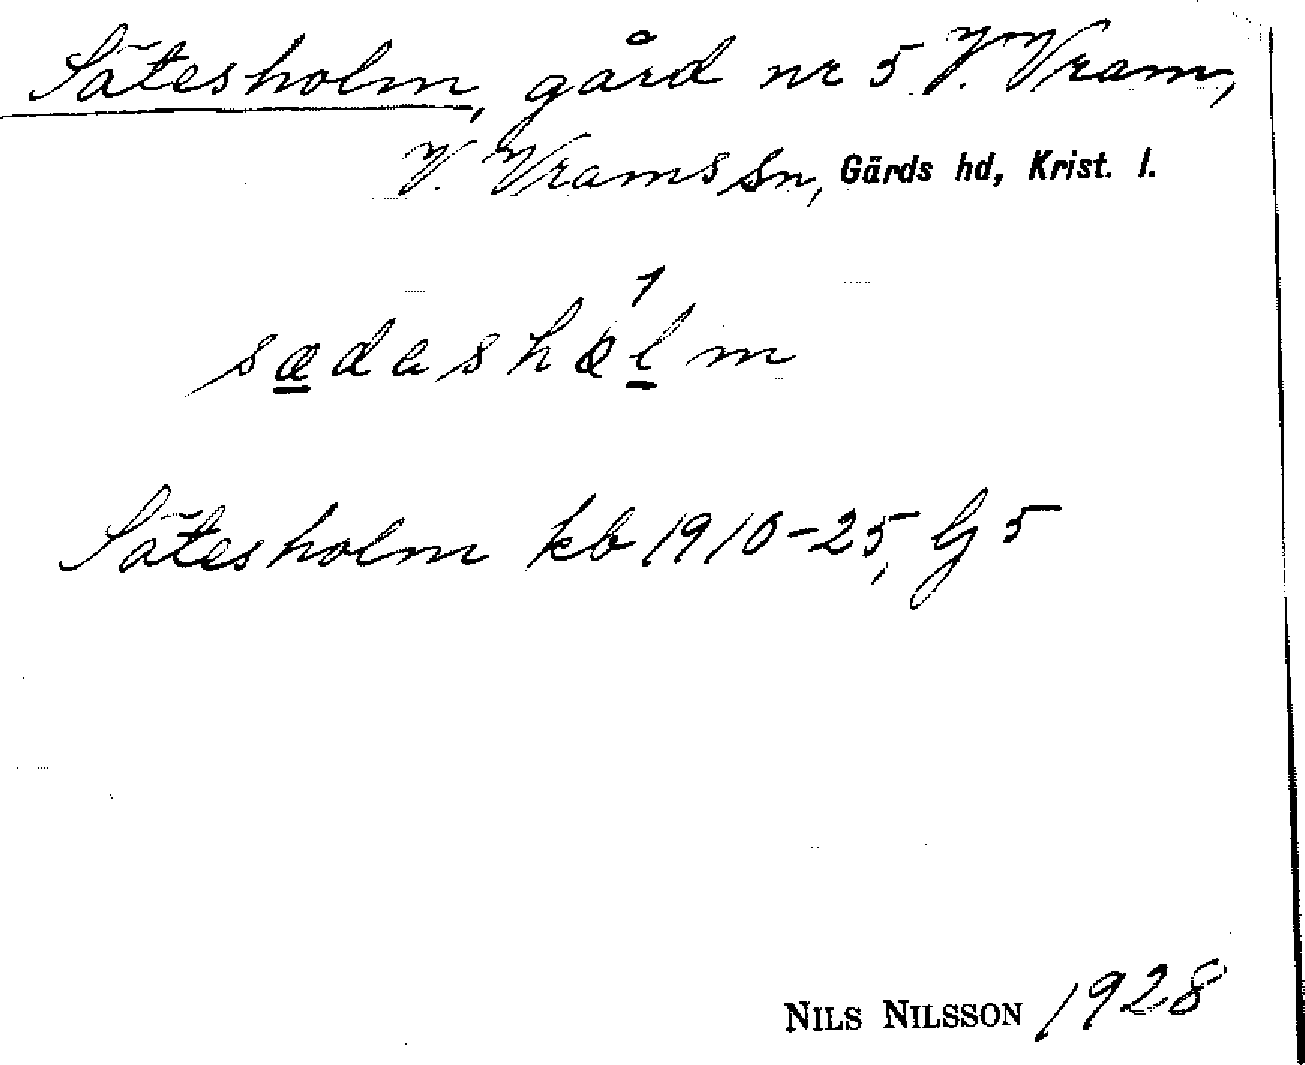 Sätesholm, gård nr 5 V. Vram,
V. Vrams sn, Gärds hd, Krist. l.
sædashålm
Sätesholm kb 1910-25, G 5
NILS NILSSON 1928